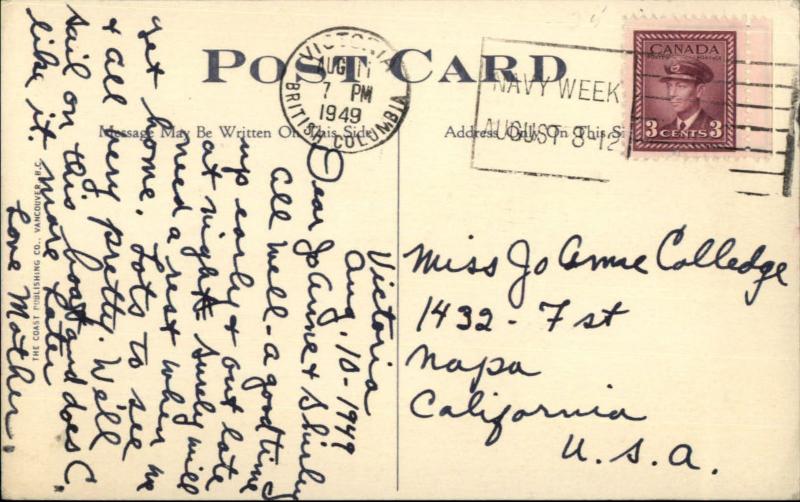 POST CARD
VICTORIA
AUG 11
7 PM
1949
BRITISH COLUMBIA
NAVY WEEK
AUGUST 8-12
CANADA
POSTES POSTAGE
3 CENTS 3
Message May Be Written On This Side
Address Only On This Si
Victoria
Aug. 10-1949
Dear JoAnne & Shirley
All well - a good time
up early & out late
at night surely will
need a rest when we
get home. Lots to see
& all very pretty. We'll
sail on this boat and does C.
like it. more later
Love Mother.
THE COAST PUBLISHING CO., VANCOUVER, B.C.
Miss Jo Anne Colledge
1432 - 7 st
Napa
California
U.S.A.